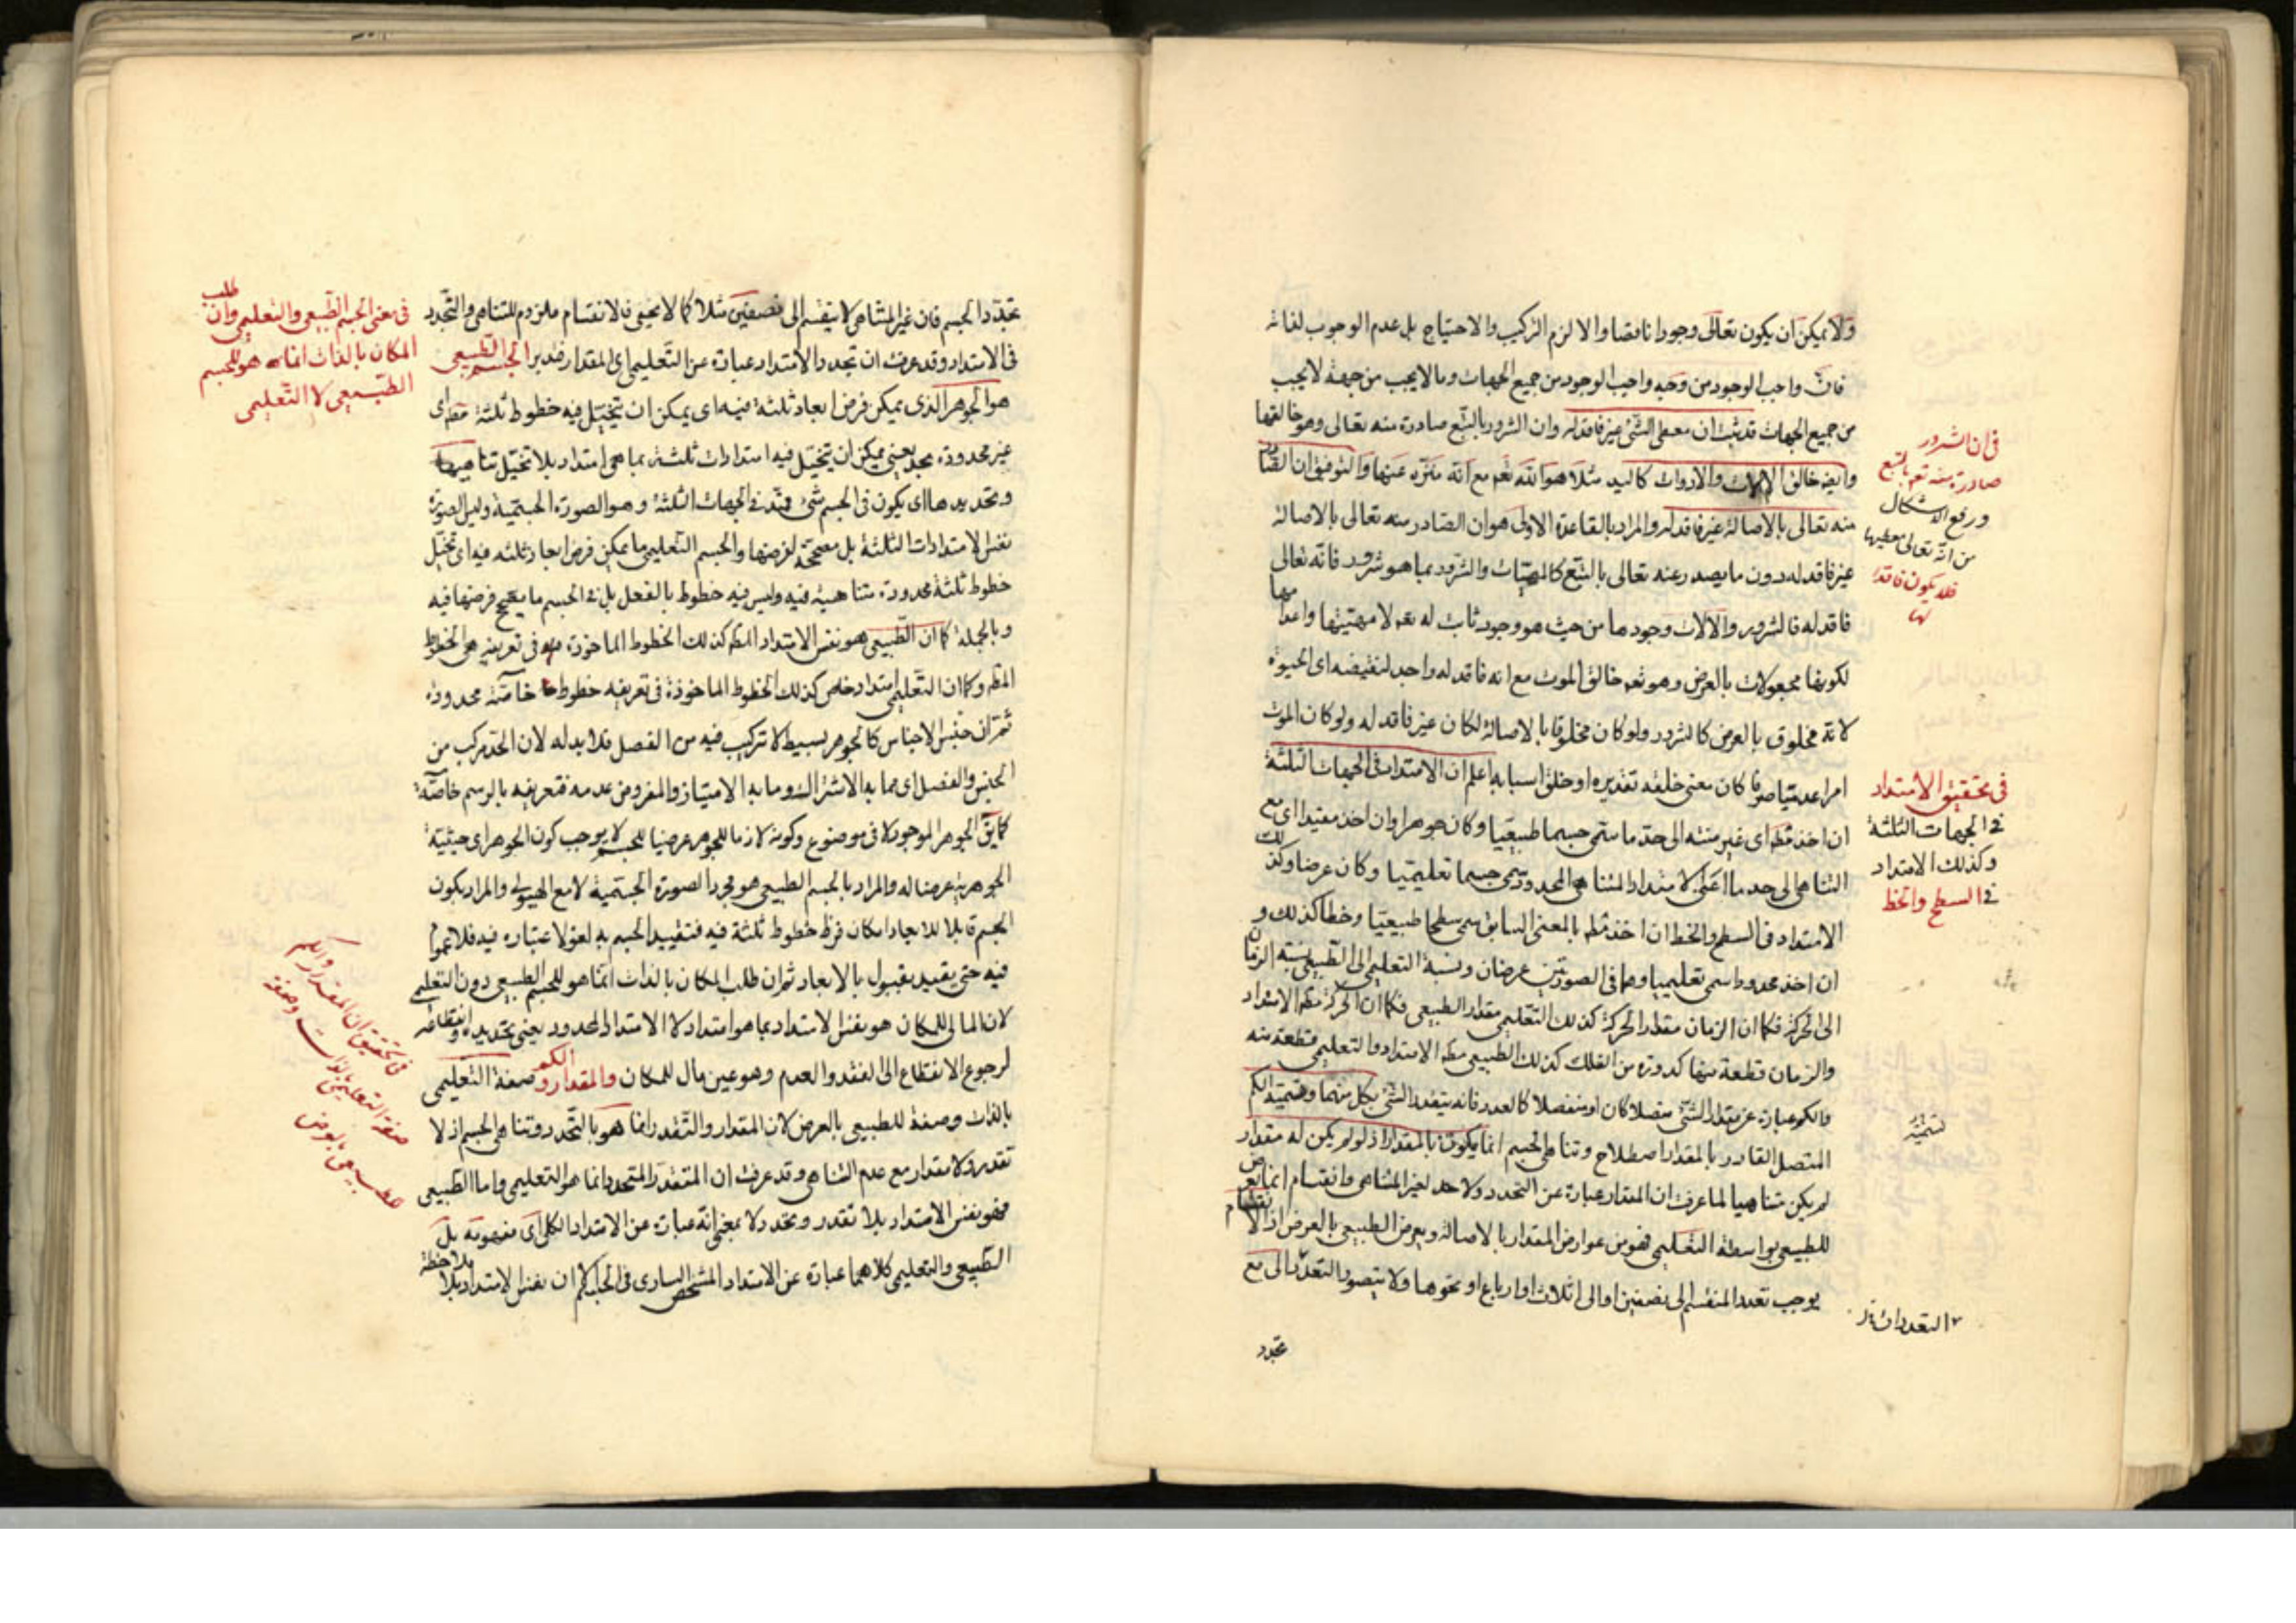 ولا يمكن ان يكون تعالى وجودا ناقصا والا لزم التركيب والاحتياج بل عدم الوجوب لذاته
فان واجب الوجود من وجه واجب الوجود من جميع الجهات وما لا يجب من جهة لا يجب
من جميع الجهات قد ثبت ان معطى الشئ غير فاقد له وان الشرور بالتبع صادرة منه تعالى وهو خالقها
وايضا خالق الالات والادوات كاليد مثلا هو الله تعم مع انه منزه عنها والتوفيق ان الصادر
منه تعالى بالاصالة غير فاقد له والمراد بالقاعدة الاولى هو ان الصادر منه تعالى بالاصالة
غير فاقد له دون ما يصدر عنه تعالى بالتبع كالمهيات والشرور بما هو شرور فانه تعالى
فاقد له فالشرور والالات وجودها من حيث هو وجود ثابت له تعم لا مهيتها واعدامها
لكونها مجعولات بالعرض وهو تعم خالق الموت مع انه فاقد له واجد لنقيضه اى الحيوة
لانه مخلوق بالعرض كالشرور ولو كان مخلوقا بالاصالة لكان غير فاقد له ولو كان الموت
امرا عدميا صرفا كان معنى خلقه تقديره او خلق اسبابه اعلم ان الامتداد فى الجهات الثلثة
ان اخذ مطم اى غير منته الى حد ما سمى جسما طبيعيا وكان جوهرا وان اخذ مقيدا اى مع
التناهى الى حد ما اعنى الامتداد المتناهى المحدود سمى جسما تعليميا وكان عرضا وكذلك
الامتداد فى السطح والخط ان اخذ مطم بالمعنى السابق سمى سطحا طبيعيا وخطا كذلك و
ان اخذ محدودا سمى تعليميا وهما فى الصورتين عرضان ونسبة التعليمى الى الطبيعى نسبة الزمان
الى الحركة فكما ان الزمان مقدار الحركة كذلك التعليمى مقدار الطبيعى فكما ان الحركة مطم الامتداد
والزمان قطعة منها كدورة من الفلك كذلك الطبيعى مطم الامتداد والتعليمى قطعة منه
والكم عبارة عن مقدار الشئ متصلا كان او منفصلا كالعدد فانه يتقدر الشئ بكل منهما وتسمية الكم
المتصل القادر بالمقدار اصطلاح وتناهى الجسم انما يكون بالمقدار اذ لو لم يكن له مقدار
لم يكن متناهيا لما عرفت ان المقدار عبارة عن التحدد ولا حد لغير المتناهى وانقسام انما يعرض
للطبيعى بواسطة التعليمى فهو من عوارض المقدار بالاصالة ويعرض الطبيعى بالعرض اذ الانقسام
يوجب تعدد المنقسم الى نصفين او الى اثلاث او ارباع او نحوها ولا يتصور التعدد الى مع
تجدد
فى ان الشرور
صادرة منه تعم بالتبع
ورفع الاشكال
من انه تعالى معطيها
فلا يكون فاقدا
لها
فى تحقيق الامتداد
فى الجهات الثلثة
وكذلك الامتداد
فى السطح والخط
تجدد الجسم فان غير المتناهى لا ينقسم الى نصفين مثلا كما لا يخفى فالانقسام ملزوم للتناهى والتحدد
فى الامتداد وقد عرفت ان تحدد الامتداد عبارة عن التعليمى اى المقدار فتدبر الجسم الطبيعى
هو الجوهر الذى يمكن فرض ابعاد ثلثة فيه اى يمكن ان يتخيل فيه خطوط ثلثة مطم اى
غير محدودة بحد يعنى يمكن ان يتخيل فيه امتدادات ثلثة بما هى امتداد بلا تخيل تناهيها
وتحديدها اى يكون فى الجسم شئ ممتد فى الجهات الثلثة وهو الصورة الجسمية وليس الصورة
نفس الامتدادات الثلثة بل مصححة لفرضها والجسم التعليمى ما يمكن فرض ابعاد ثلثه فيه اى تخيل
خطوط ثلثة محدودة متناهية فيه وليس فيه خطوط بالفعل بل فى الجسم ما يصحح فرضها فيه
وبالجملة كما ان الطبيعى هو نفس الامتداد المطم كذلك الخطوط الماخوذة فى تعريفه هى الخطوط
المطم وكما ان التعليمى امتداد خاص كذلك الخطوط الماخوذة فى تعريفه خطوط خاصة محدودة
ثم ان جنس الاجناس كالجوهر بسيط لا تركيب فيه من الفصل فلا بد له لان الحد مركب من
الجنس والفصل اى مما به الاشتراك وما به الامتياز والمفروض عدمه فتعريفه بالرسم خاصة
كما يق الجوهر الموجود لا فى موضوع وكونه لازما للجوهر عرضيا للجسم لا يوجب كون الجوهر اى حيثية
الجوهرية عرضا له والمراد بالجسم الطبيعى هو مجرد الصورة الجسمية لا مع الهيولى والمراد بكون
الجسم قابلا للابعاد امكان فرض خطوط ثلثة فيه فتقييد الجسم به لغو لاعتباره فيه فلا عموم
فيه حتى يقيد بقبول بالابعاد ثم ان طلب المكان بالذات انما هو للجسم الطبيعى دون التعليمى
لان المالى للمكان هو نفس الامتداد بما هو امتداد لا الامتداد المحدود يعنى بتحديده وانقطاعه
لرجوع الانقطاع الى الفقد والعدم وهو عين مال للمكان والمقدار والكم صفة التعليمى
بالذات وصفة للطبيعى بالعرض لان المقدار والتقدر انما هو بالتحدد وتناهى الجسم اذ لا
تقدر ولا مقدار مع عدم التناهى وقد عرفت ان المتقدر المتحدد انما هو التعليمى واما الطبيعى
فهو نفس الامتداد بلا تقدر وتحدد لا بمعنى انه عبارة عن الامتداد الكلى اى مفهومه بل
الطبيعى والتعليمى كلاهما عبارة عن الامتداد المشخص السارى فى الجسم كما ان نفس الامتداد بلا ملاحظة
فى معنى الجسم الطبيعى والتعليمى وان طلب
المكان بالذات انما هو للجسم
الطبيعى لا التعليمى
فى تحقيق ان المقدار والكم
صفة التعليمى بالذات وصفة
للطبيعى بالعرض